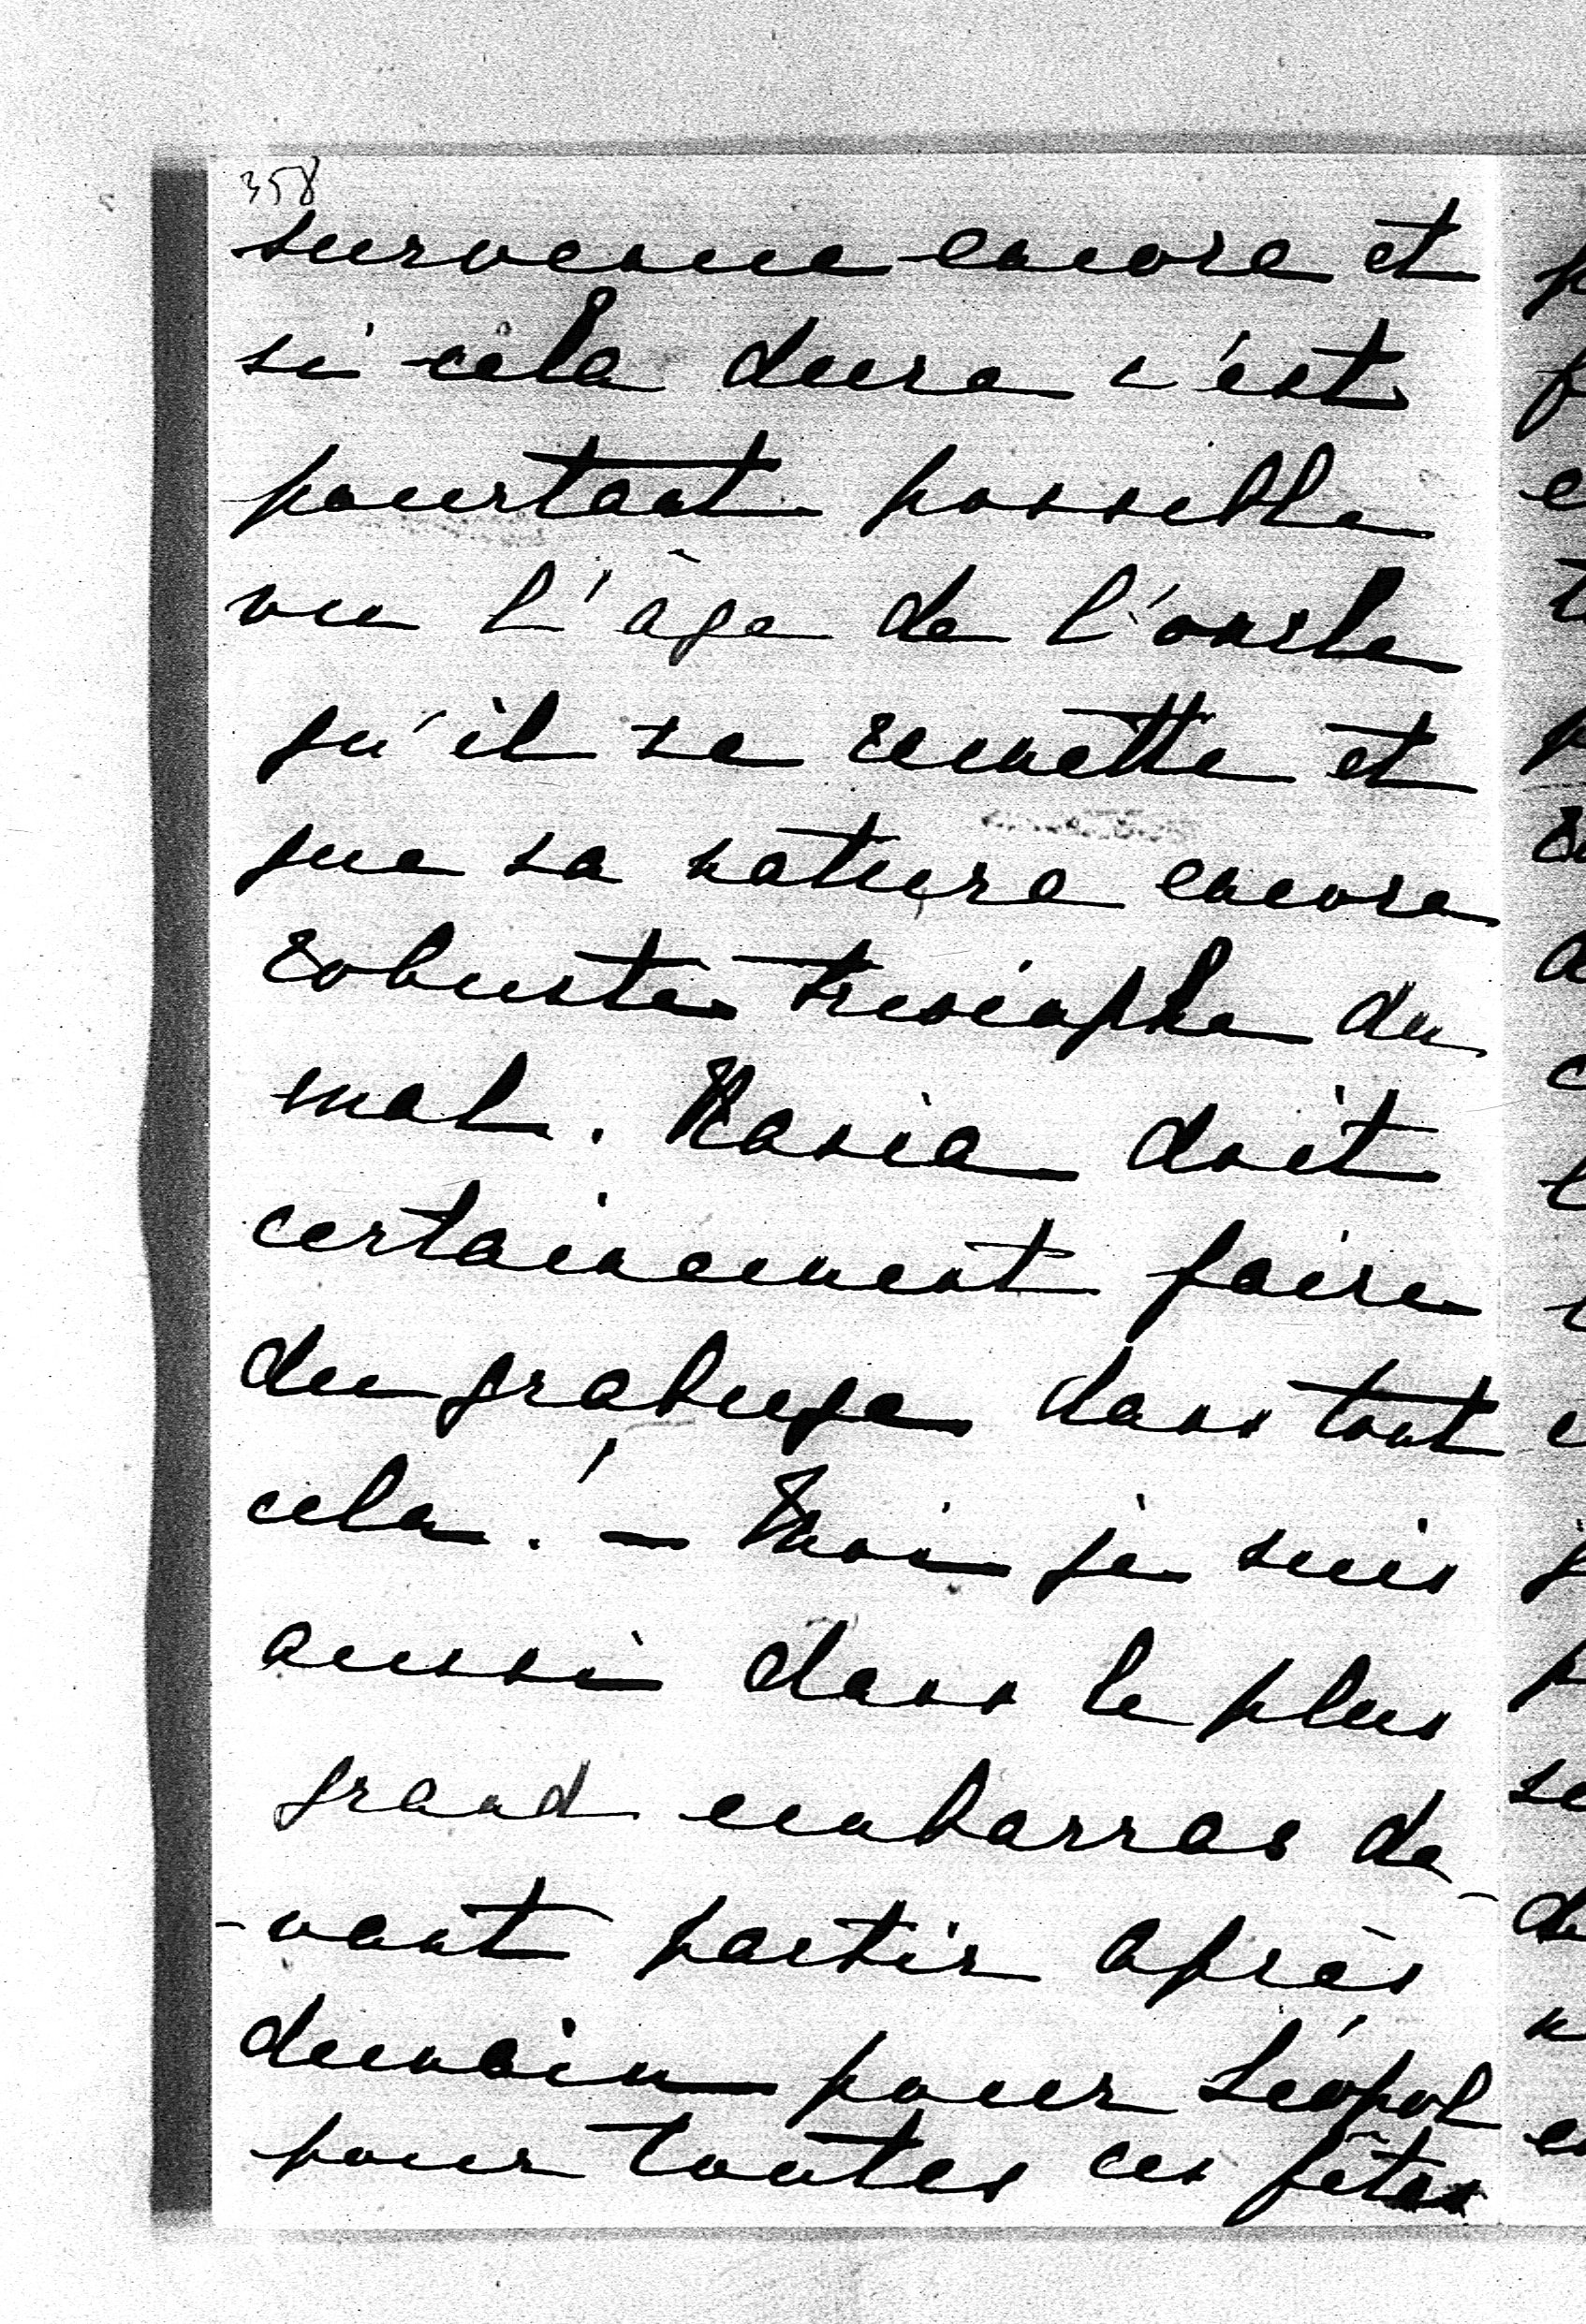 358
survenue encore et
si cela dure c'est
pourtant possible
vu l'âge de l'oncle
qu'il se remette et
que sa nature encore
robuste triomphe du
mal. Kasia doit
certainement faire
du grabuge dans tout
cela! - Moi je suis
aussi dans le plus
grand embarras de-
-vant partir après
demain pour Léopol
pour toutes ces fêtes